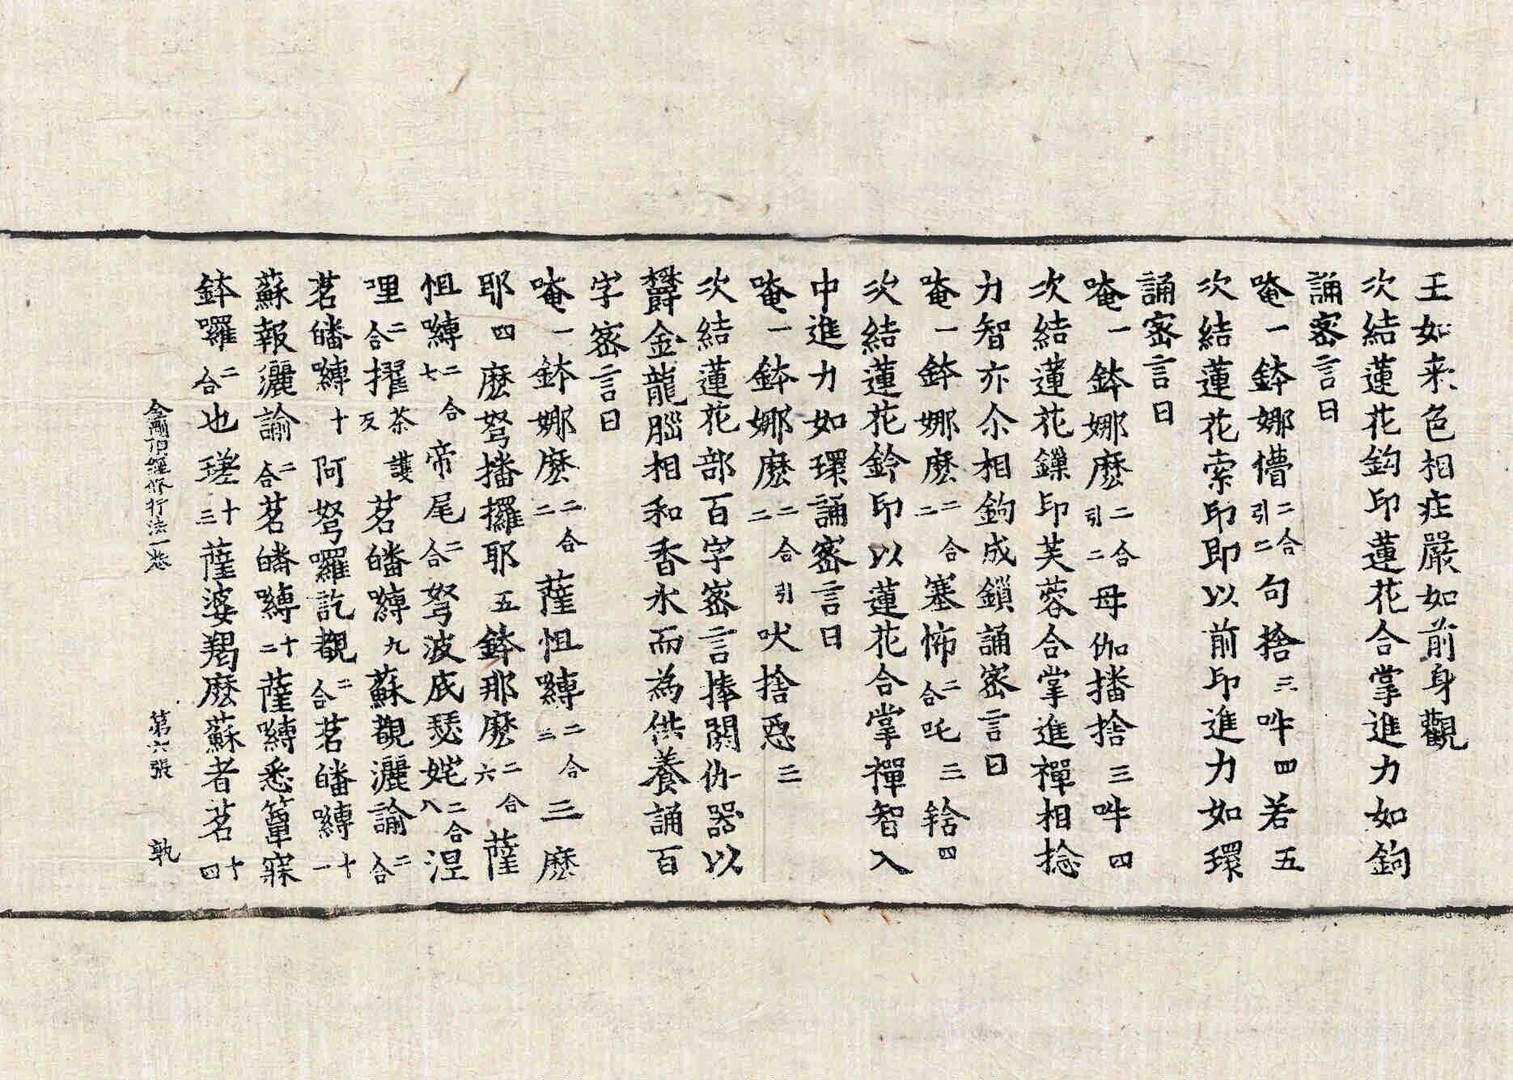 王如来色相庄嚴如前身觀
次結蓮花鈎印蓮花合掌進力如鉤
誦密言曰
唵一鉢娜懵二合引二句捨三吽四若五
次結蓮花索印即以前印進力如環
誦密言曰
唵一鉢娜麽二合引二母伽播捨三吽四
次結蓮花鏁印芙蓉合掌進禪相捻
力智亦尒相鉤成鎖誦密言曰
唵一鉢娜麽二合二塞怖二合吒三𨋢四
次結蓮花鈴印以蓮花合掌禪智入
中進力如環誦密言曰
唵一鉢娜麽二合引二吠捨惡三
次結蓮花部百字密言捧閼伽器以
欝金龍腦相和香水而為供養誦百
字密言曰
唵一鉢娜麽二合二薩怛嚩二合三三麽
耶四麽努播攞耶五鉢那麽二合六薩
怛嚩二合七帝尾二合努波底瑟姹二合八涅
哩二合擢茶護反茗皤嚩九蘇覩灑諭二合
茗皤嚩十阿努囉訖覩二合茗皤嚩十一
蘇報灑諭二合茗皤嚩十二薩嚩悉簞寐
鉢囉二合也瑳十三薩婆羯麽蘇者茗十四
金剛頂經修行法一卷 第六張 孰